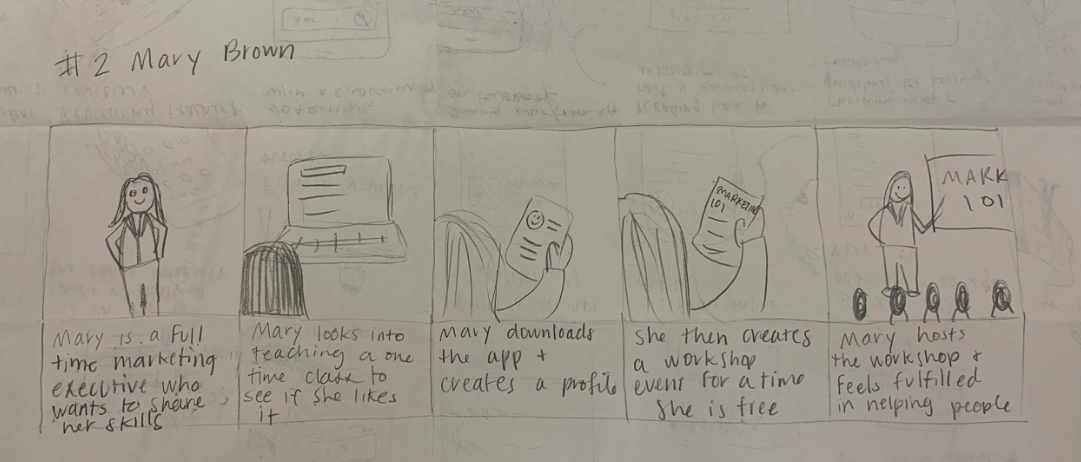 #2 Mary Brown
MARKETING
101
MARK
101
Mary is a full
time marketing
executive who
wants to share
her skills
Mary looks into
teaching a one
time class to
see if she likes
it
Mary downloads
the app +
creates a profile
She then creates
a workshop
event for a time
she is free
Mary hosts
the workshop +
feels fulfilled
in helping people